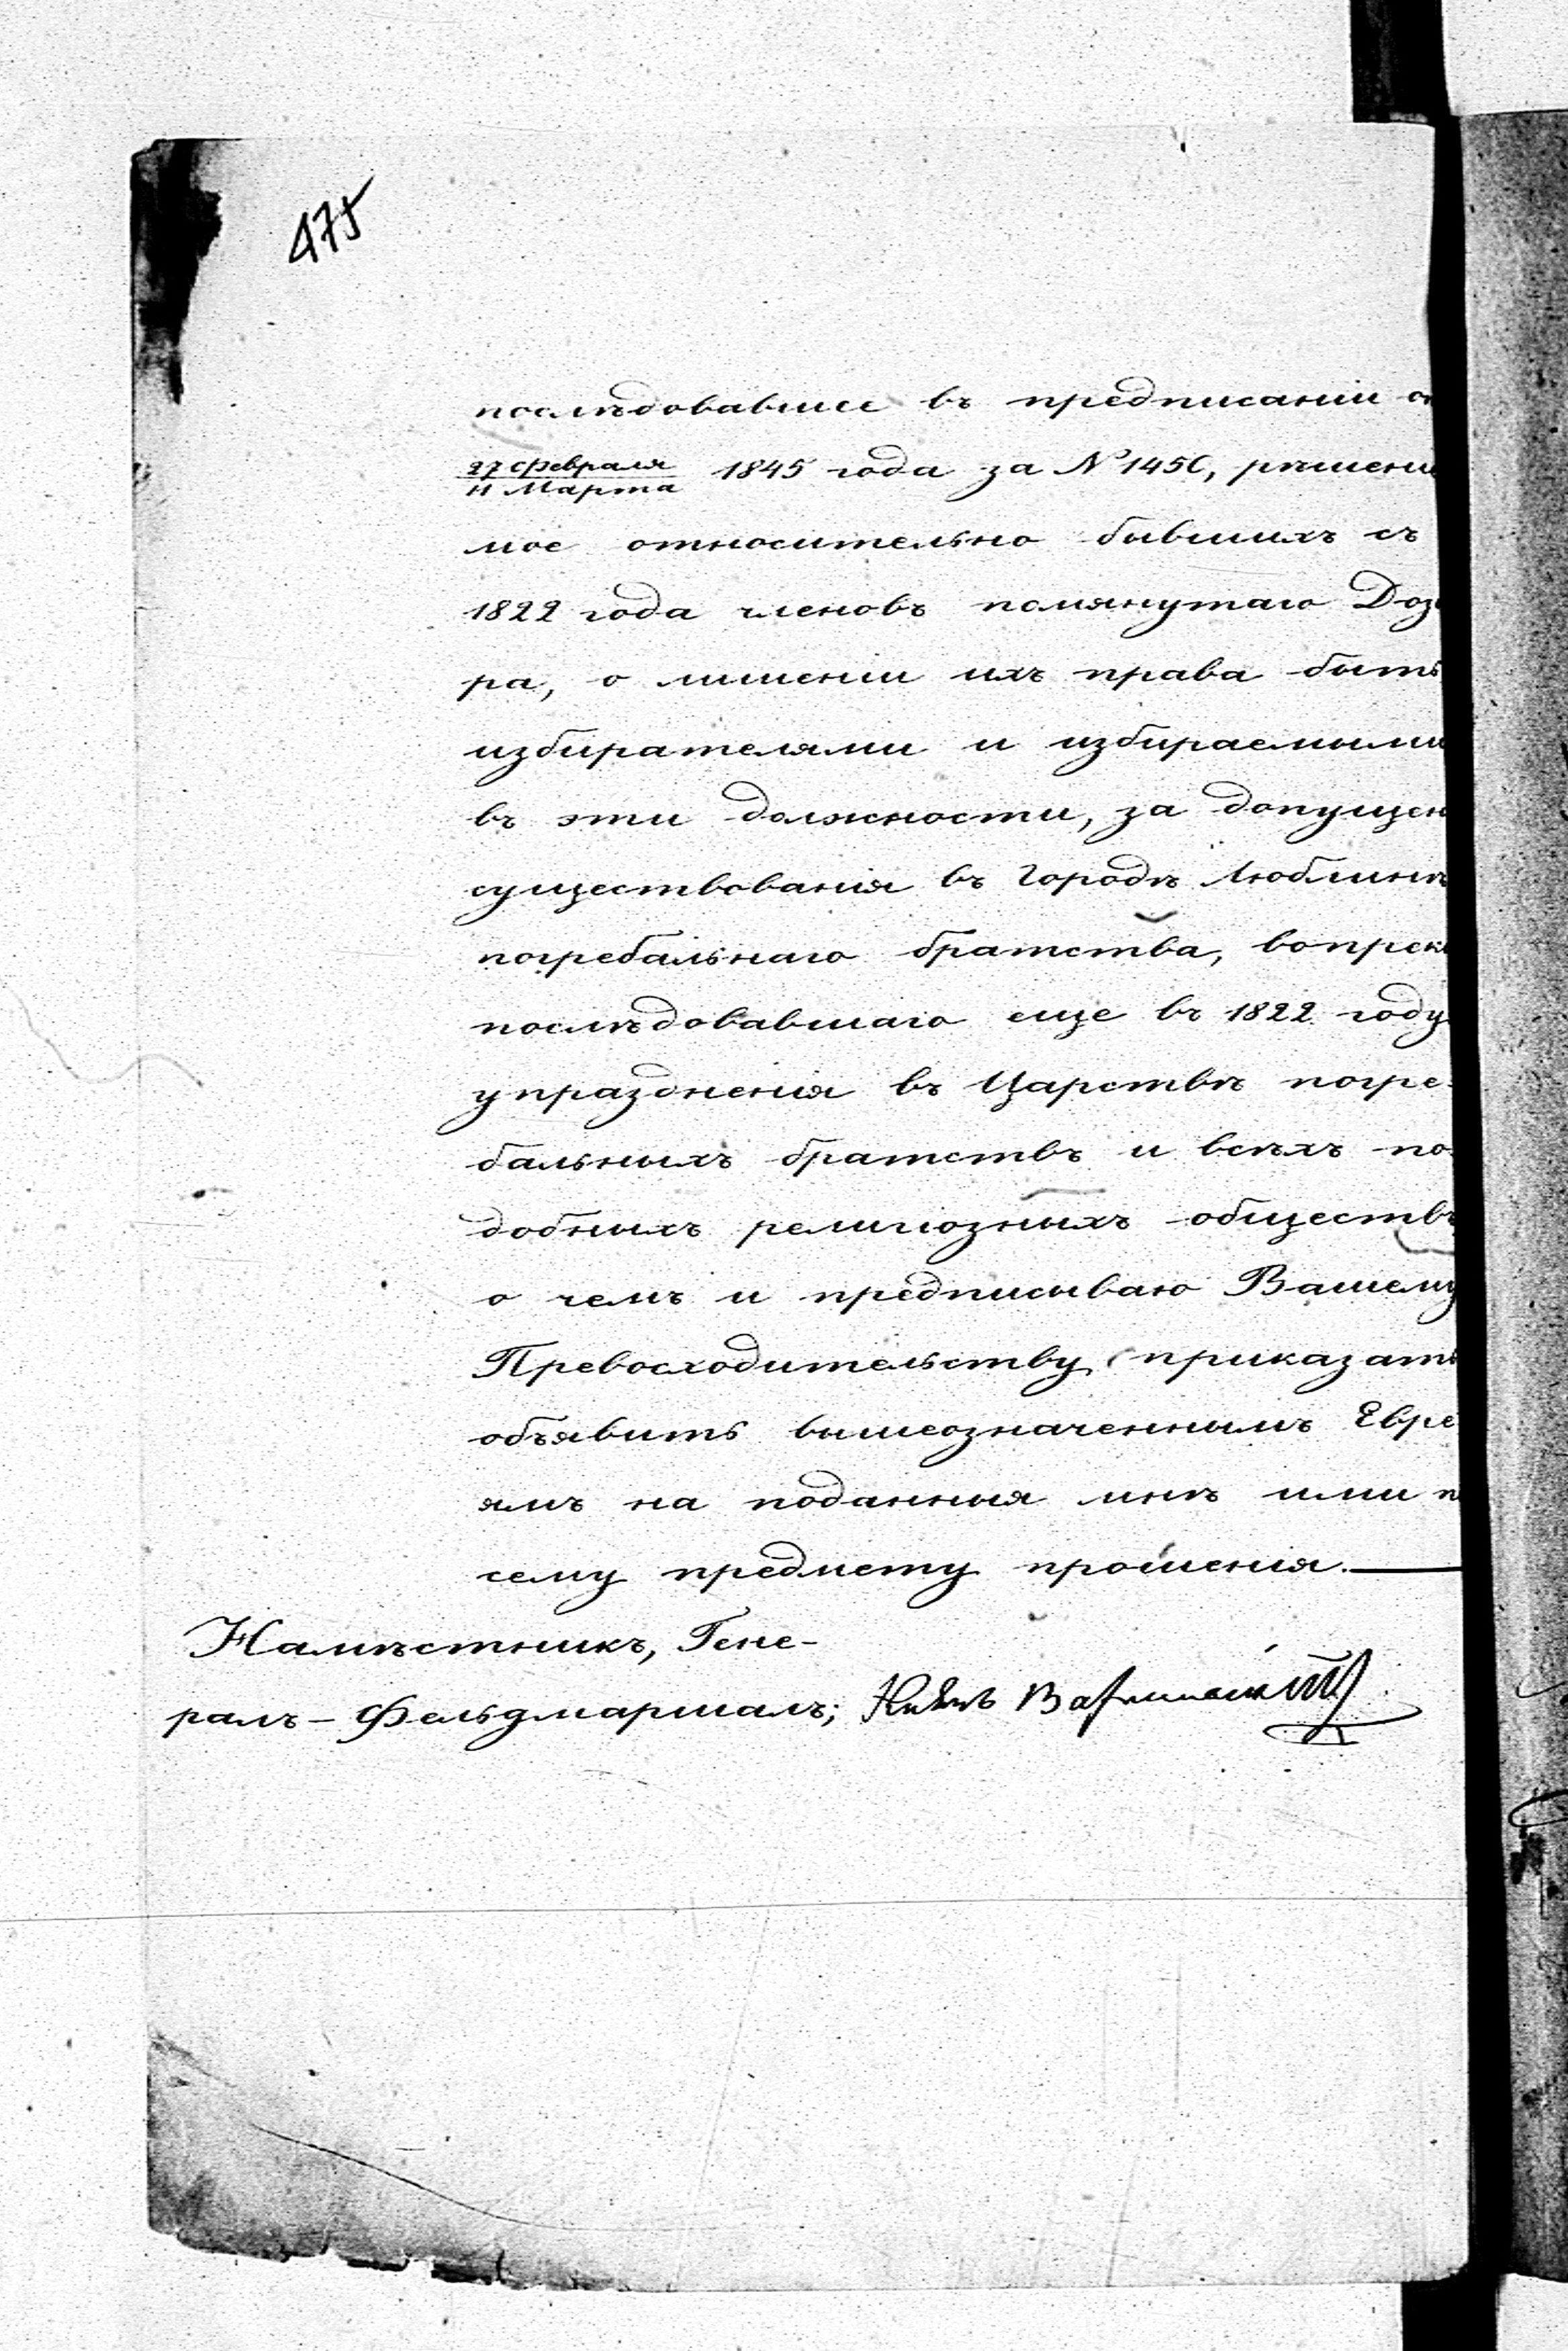 475
послѣдовавшее въ предписаніи
27 Февраля
11 Марта 1845 года за № 1450, рѣшені
мое относительно бывшихъ съ
1822 года членовъ помянутаго Дозо
ра, о лишеніи ихъ права быть
избирателями и избираемыми
въ эти должности, за допущен
существованія въ городѣ Люблинѣ
погребальнаго братства, вопреки
послѣдовавшаго еще въ 1822 году
упраздненія въ Царствѣ погре-
бальныхъ братствъ и всѣхъ по-
добныхъ религіозныхъ обществъ
о чемъ и предписываю Вашему
Превосходительству приказать
объявить вышеозначеннымъ Евре
ямъ на поданныя мнѣ ими
сему предмету прошенія.
Намѣстникъ, Гене-
ралъ-Фельдмаршалъ; Князь Варшавскій